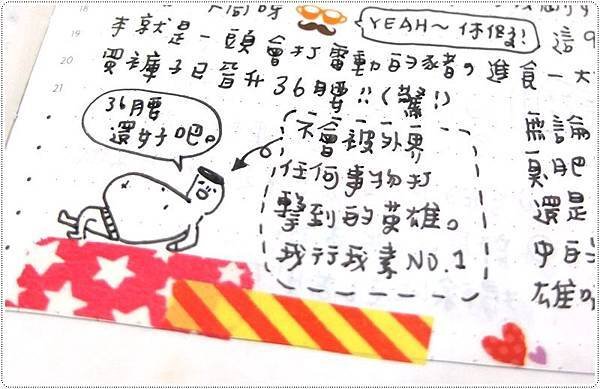 18
YEAH~ 你
這
19
本就是一頭會打電動的豬。進食一大
20
買褲子已晉升36腰!!(驚!)
21
36腰
還好吧。
不會被外界
任何事物打
擊到的英雄。
我行我素NO.1
無論
還是
雄